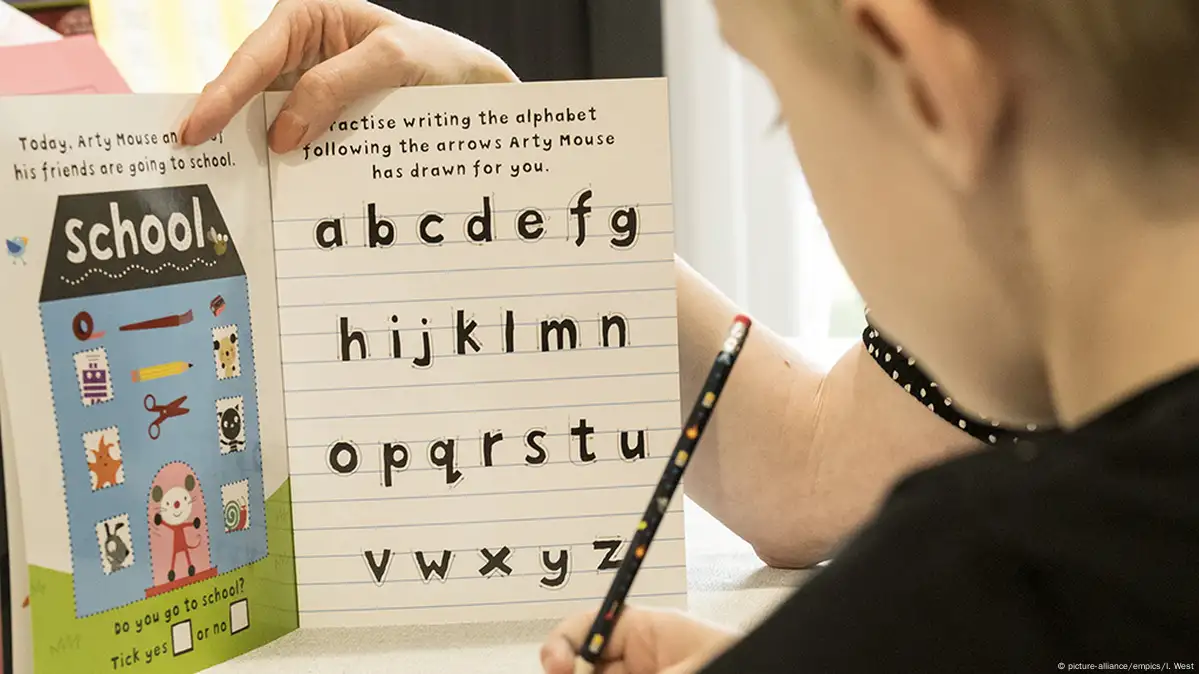 Today, Arty Mouse an of
his friends are going to school.
School
Do you go to school?
Tick yes or no
ractise writing the alphabet
following the arrows Arty Mouse
has drawn for you.
a b c d e f g
h i j k l m n
o p q r s t u
v w x y z
© picture-alliance/empics/I. West